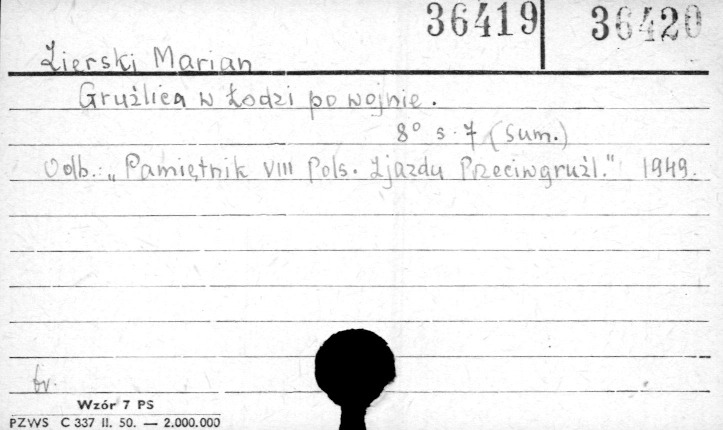 36419 36420
Zierski Marian
Gruźlica w Łodzi po wojnie.
8° s. 7 (Sum.)
Odb.: „Pamiętnik VIII Pols. Zjazdu Przeciwgruźl." 1949.
br.
Wzór 7 PS
PZWS C 337 II. 50. — 2.000.000